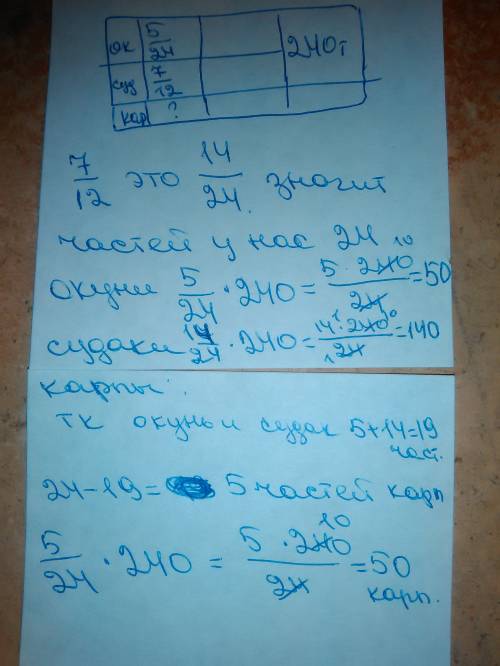 ок 5/24 240т
суд 7/12
кар ?
7/12 это 14/24 значит
частей у нас 24
окуни 5/24 · 240 = 5 · 240/24 = 50
судаки 14/24 · 240 = 14 · 240/24 = 140
карпы:
тк окунь и судак 5+14=19
част.
24-19= 5 частей карп
5/24 · 240 = 5 · 240/24 = 50
карп.